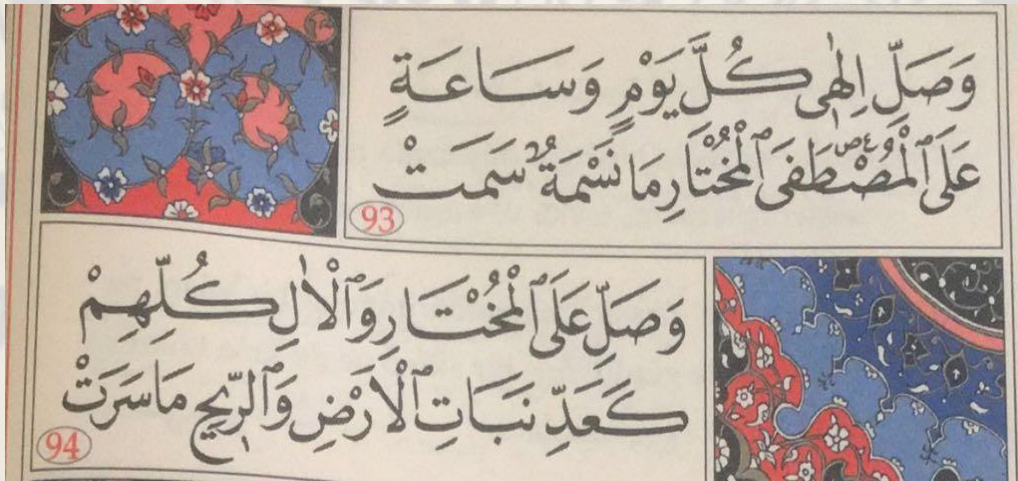 وَصَلِّ اِلٰهٖى كُلَّ يَوْمٍ وَسَاعَةٍ
عَلَى ٱلْمُصْطَفَى ٱلْمُخْتَارِ مَا نَسْمَةٌ سَمَتْ
93
وَصَلِّ عَلَى ٱلْمُخْتَارِ وَٱلْاٰلِ كُلِّهِمْ
كَعَدِّ نَبَاتِ ٱلْاَرْضِ وَٱلرِّيحِ مَا سَرَتْ
94